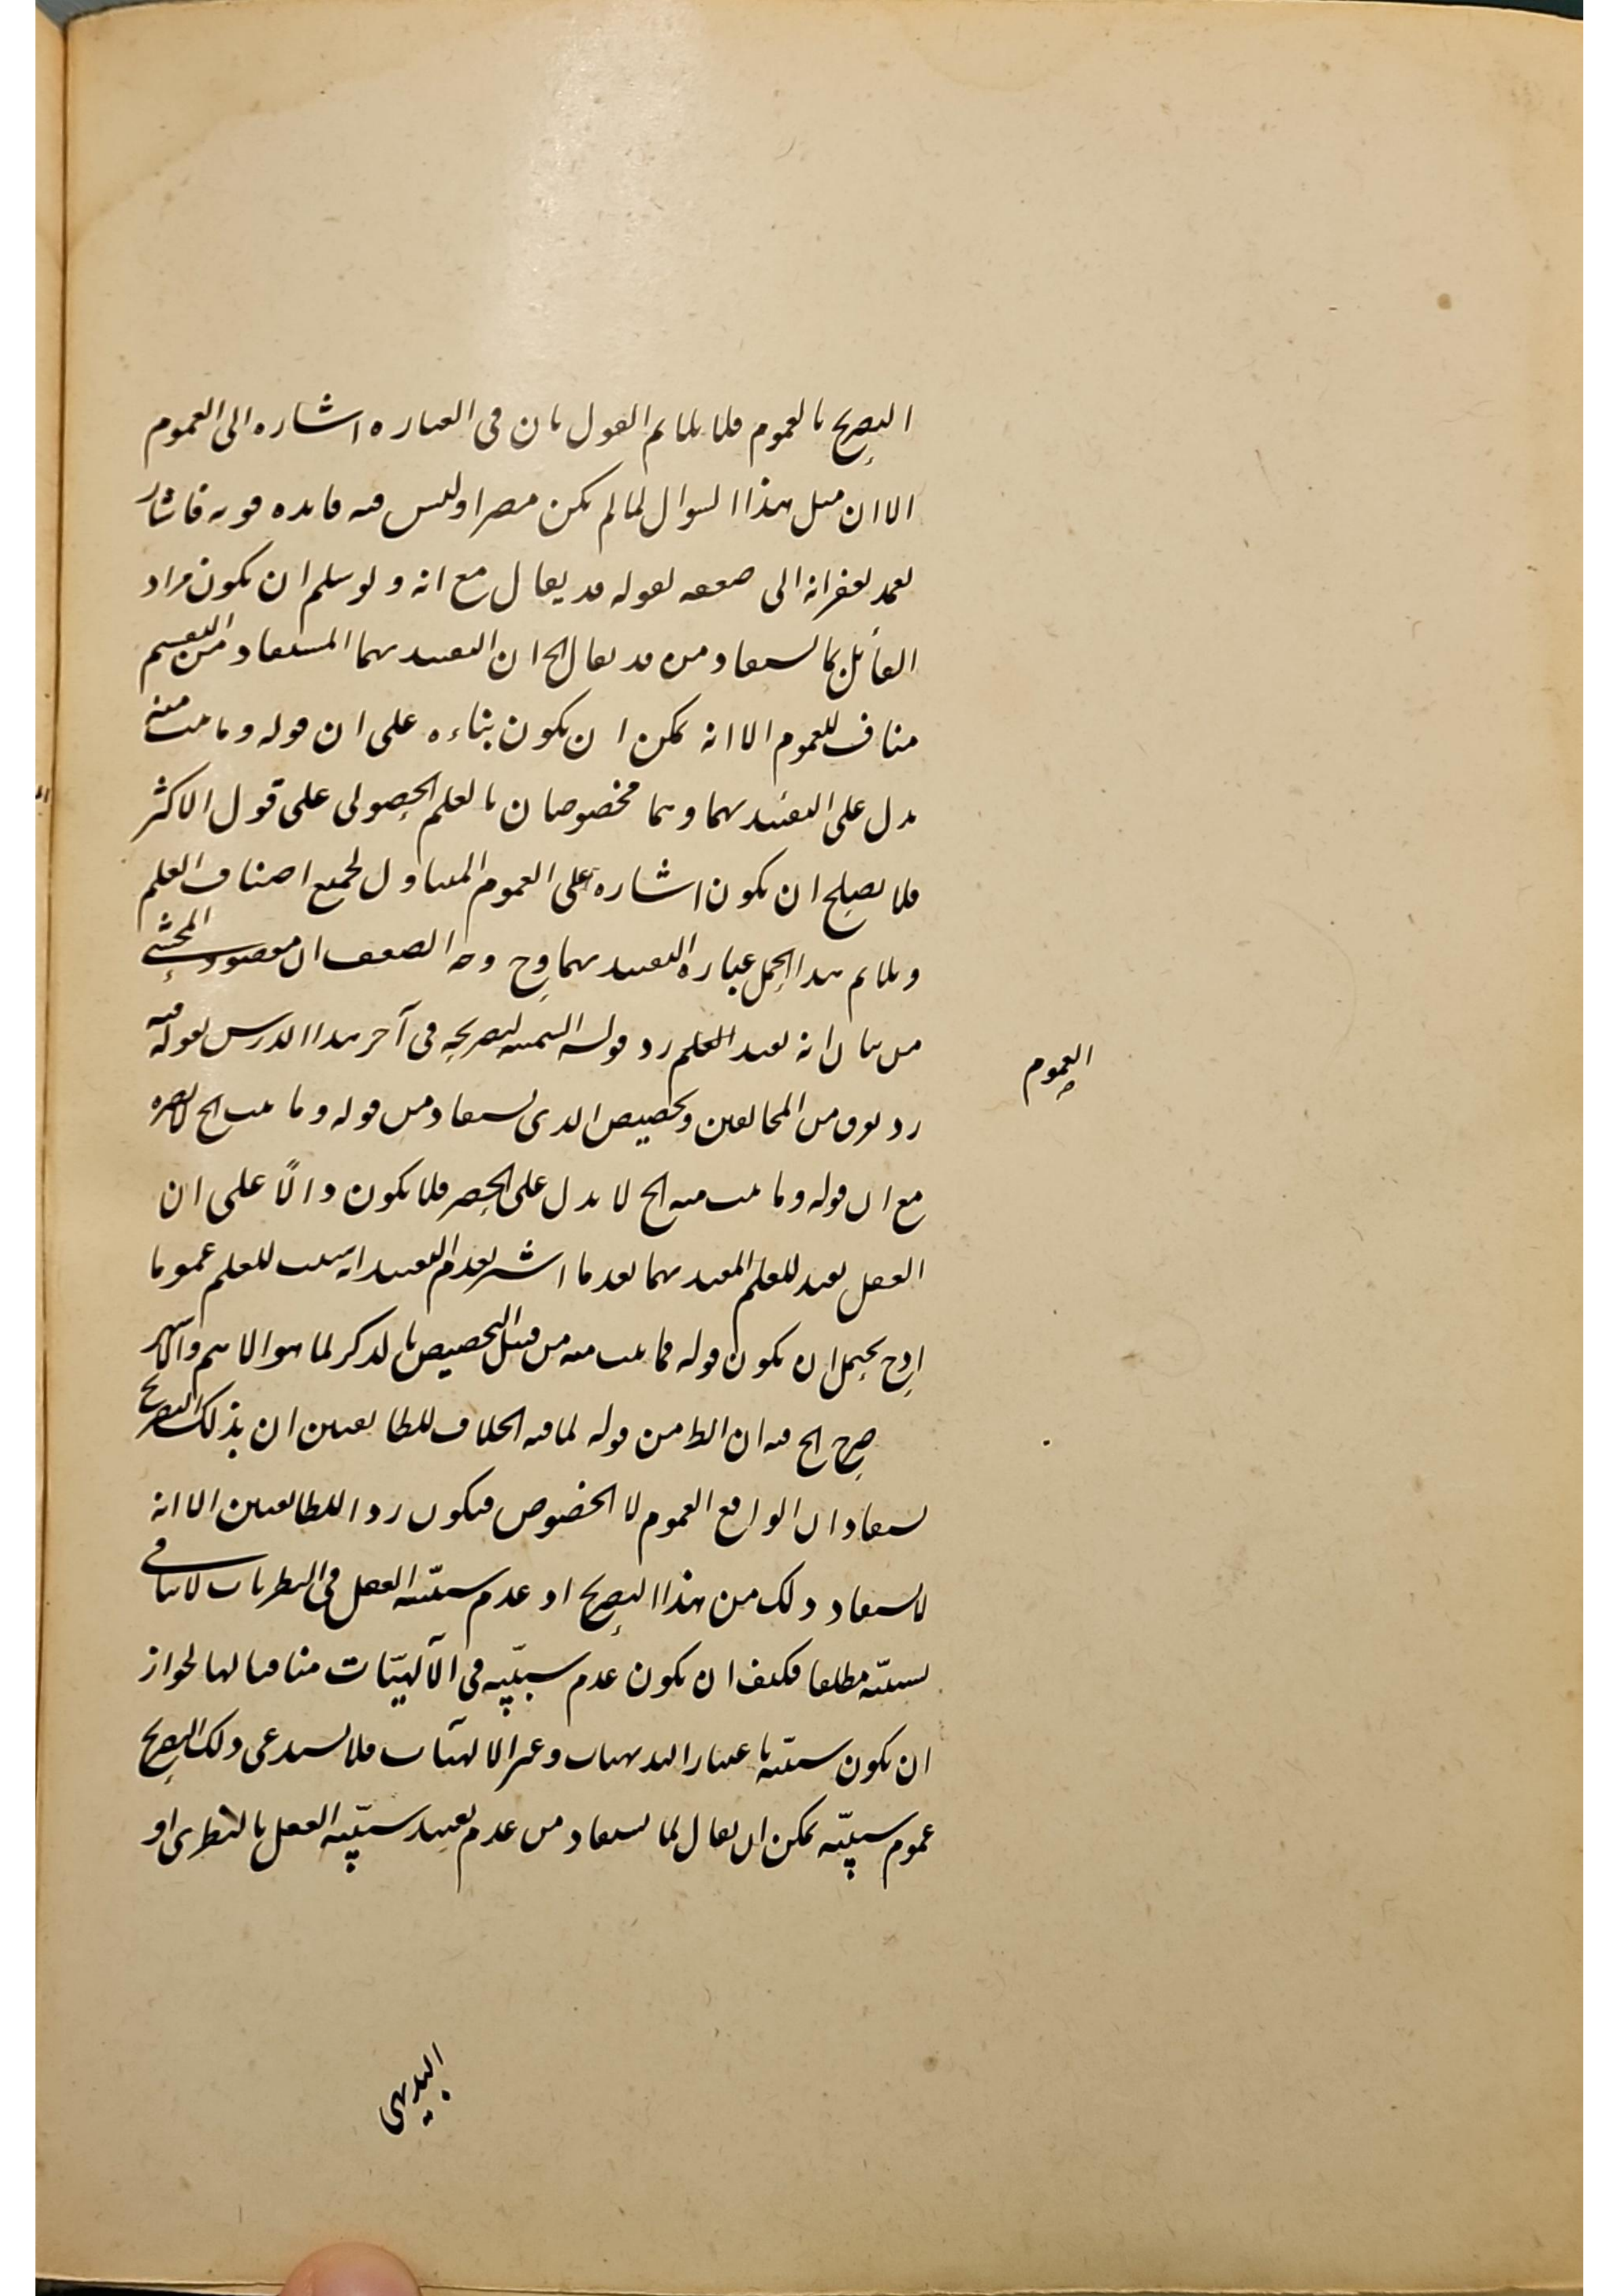 التصريح بالعموم فلا يلايم القول بان فى العباره اشاره الى العموم
الا ان مثل هذا السوال لما لم يكن مضرا وليس فيه فايده قويه فاشار
الى ضعفه بقوله قد يقال مع انه ولو سلم ان يكون مراد
القائل بما يستفاد من قد يقال الخ ان التقييد بهما المستفاد من التقسيم
مناف للعموم الا انه يمكن ان يكون بناءه على ان قوله وما يثبت منه
يدل على التقييد بهما وهما مخصوصان بالعلم الحصولى على قول الاكثر
فلا يصلح ان يكون اشاره على العموم المتناول لجميع اصناف العلم
ويلايم هذا الحمل عباره التقييد بهما وح وجه الضعف ان مقصود المحشى
من بيان انه يفيد العلم رد قول السمنيه لتصريحه فى آخر هذا الدرس بقوله فيه
رد فرق من المخالفين وتخصيص الذى يستفاد من قوله وما يثبت الخ لا يضره
العموم
مع ان قوله وما يثبت منه الخ لا يدل على الحصر فلا يكون دالًا على ان
العقل يفيد للعلم المقيد بهما بعد ما اشير بعدم التقييد انه سبب للعلم عموما
اذ ح يحتمل ان يكون قوله فما يثبت منه من قبيل التخصيص بالذكر لما هو الاهم والاشهر
صرح الخ فيه ان الظ من قوله لما فيه الخلاف للطايفتين ان بذلك التصريح
يستفاد ان الواقع العموم لا الخصوص فيكون ردا للطايفتين الا انه
لا يستفاد ذلك من هذا التصريح اذ عدم سببيّه العقل فى النظريات لا ينافى
لسببيّه مطلقا فكيف ان يكون عدم سببيّه فى الآلهيّات منافيا لها لجواز
ان يكون سببيّه باعتبار البديهيات وغير الالهيات فلا يستدعى ذلك التصريح
عموم سببيّه يمكن ان يقال لما يستفاد من عدم تقييد سببيّه العقل بالنظرى او
البديهى